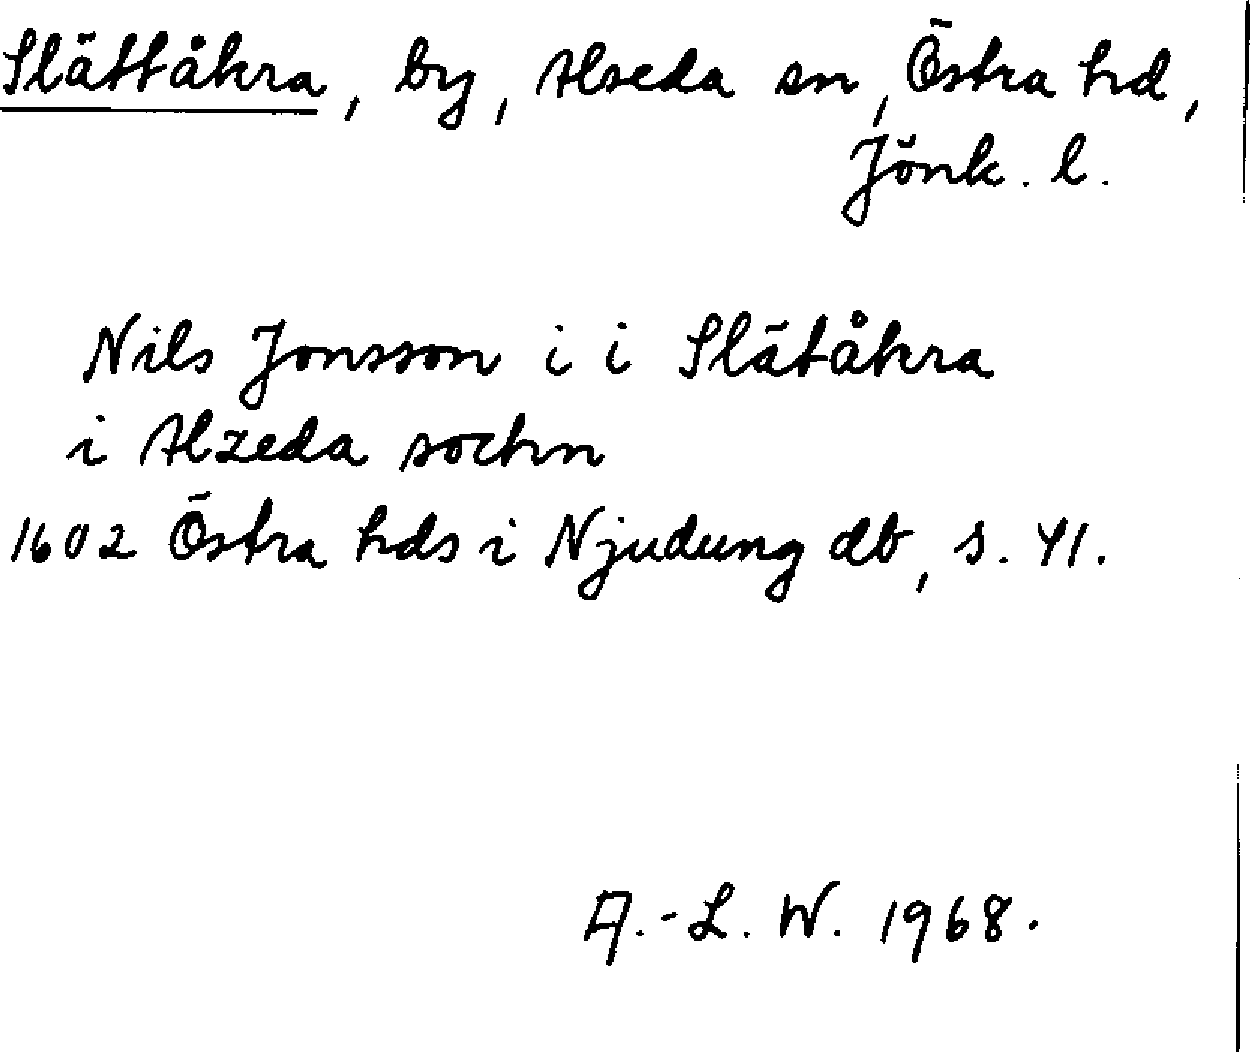 Slättåkra, by, Alseda sn, Östra hd,
Jönk. l.
Nils Jonsson i i Slätåkra
i Alzeda sochn
1602 Östra hds i Njudung db, s. 41.
A.-L. W. 1968.